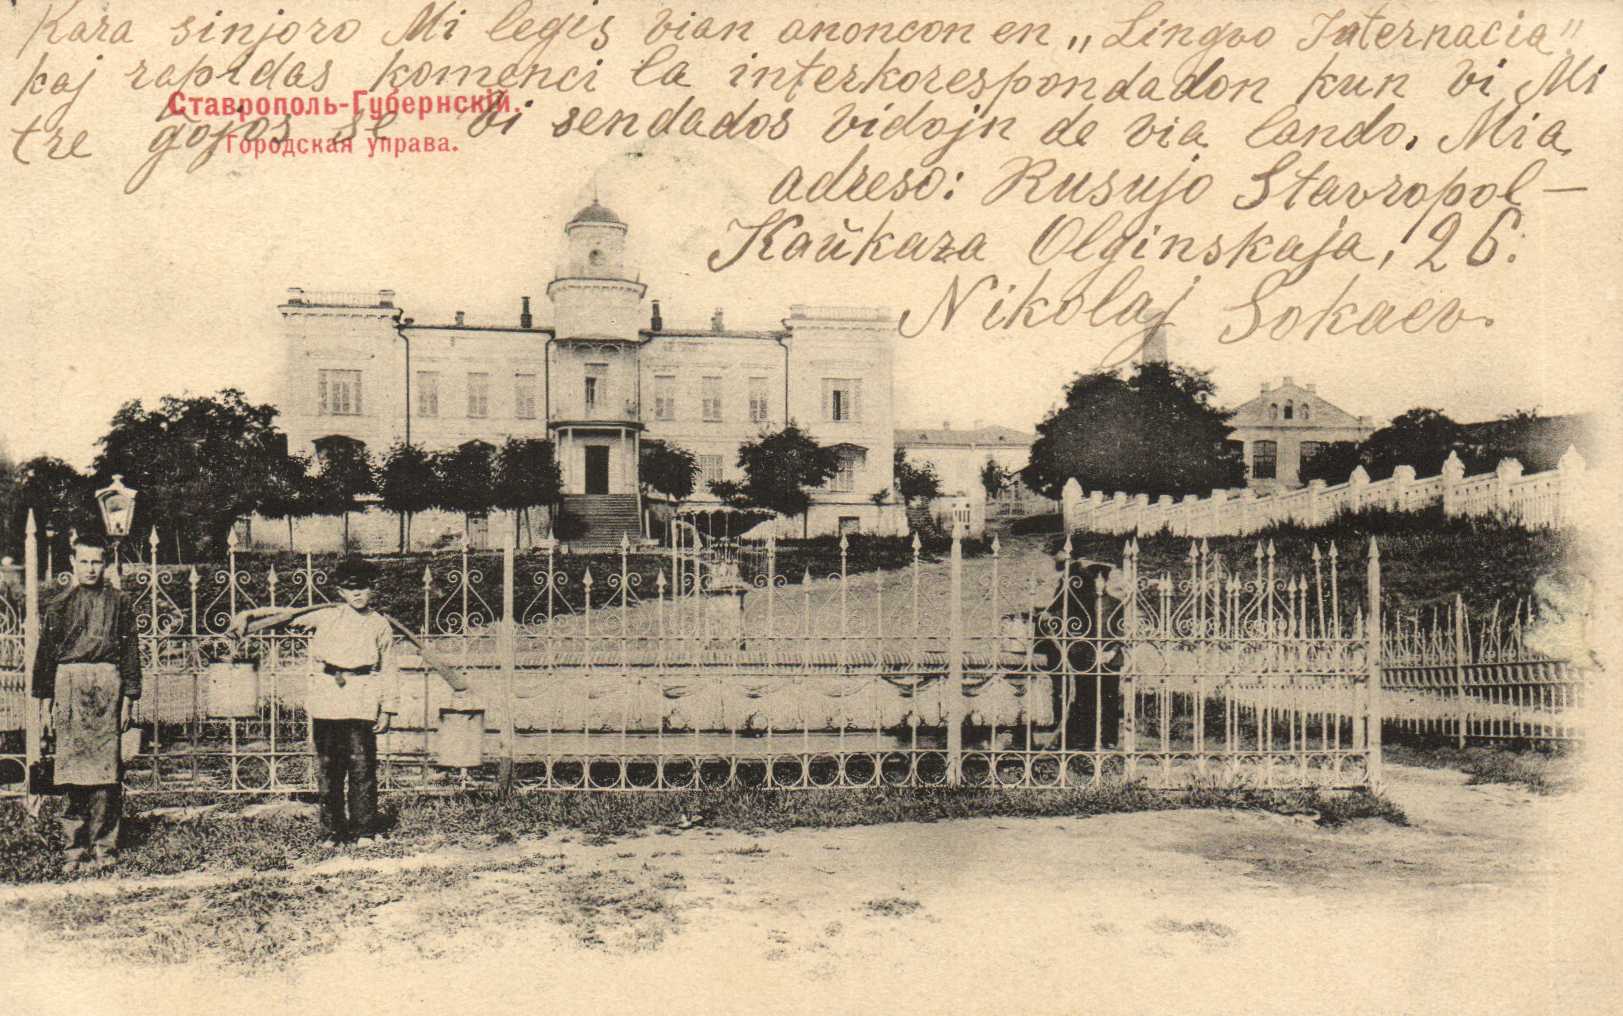 Kara sinjoro Mi legis vian anoncon en „Lingvo Internacia"
kaj rapidas komenci la interkorespondadon kun vi Mi
tre gojos se vi sendados vidojn de via lando. Mia
adreso: Rusujo Stavropol –
Kaŭkaza Olginskaja, 26.
Nikolaj Sokaev.
Ставрополь-Губернскій.
Городская управа.